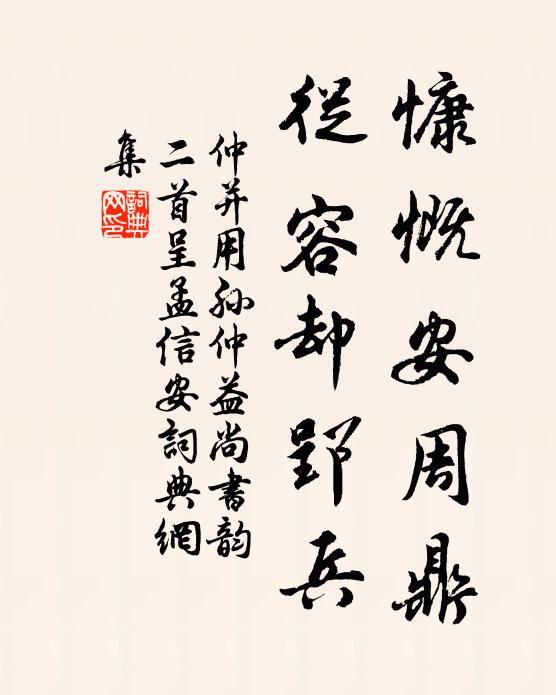 慷慨安周鼎
從容却郢兵
仲并用孫仲益尚書韵
二首呈孟信安詞典網
集
詞典網印